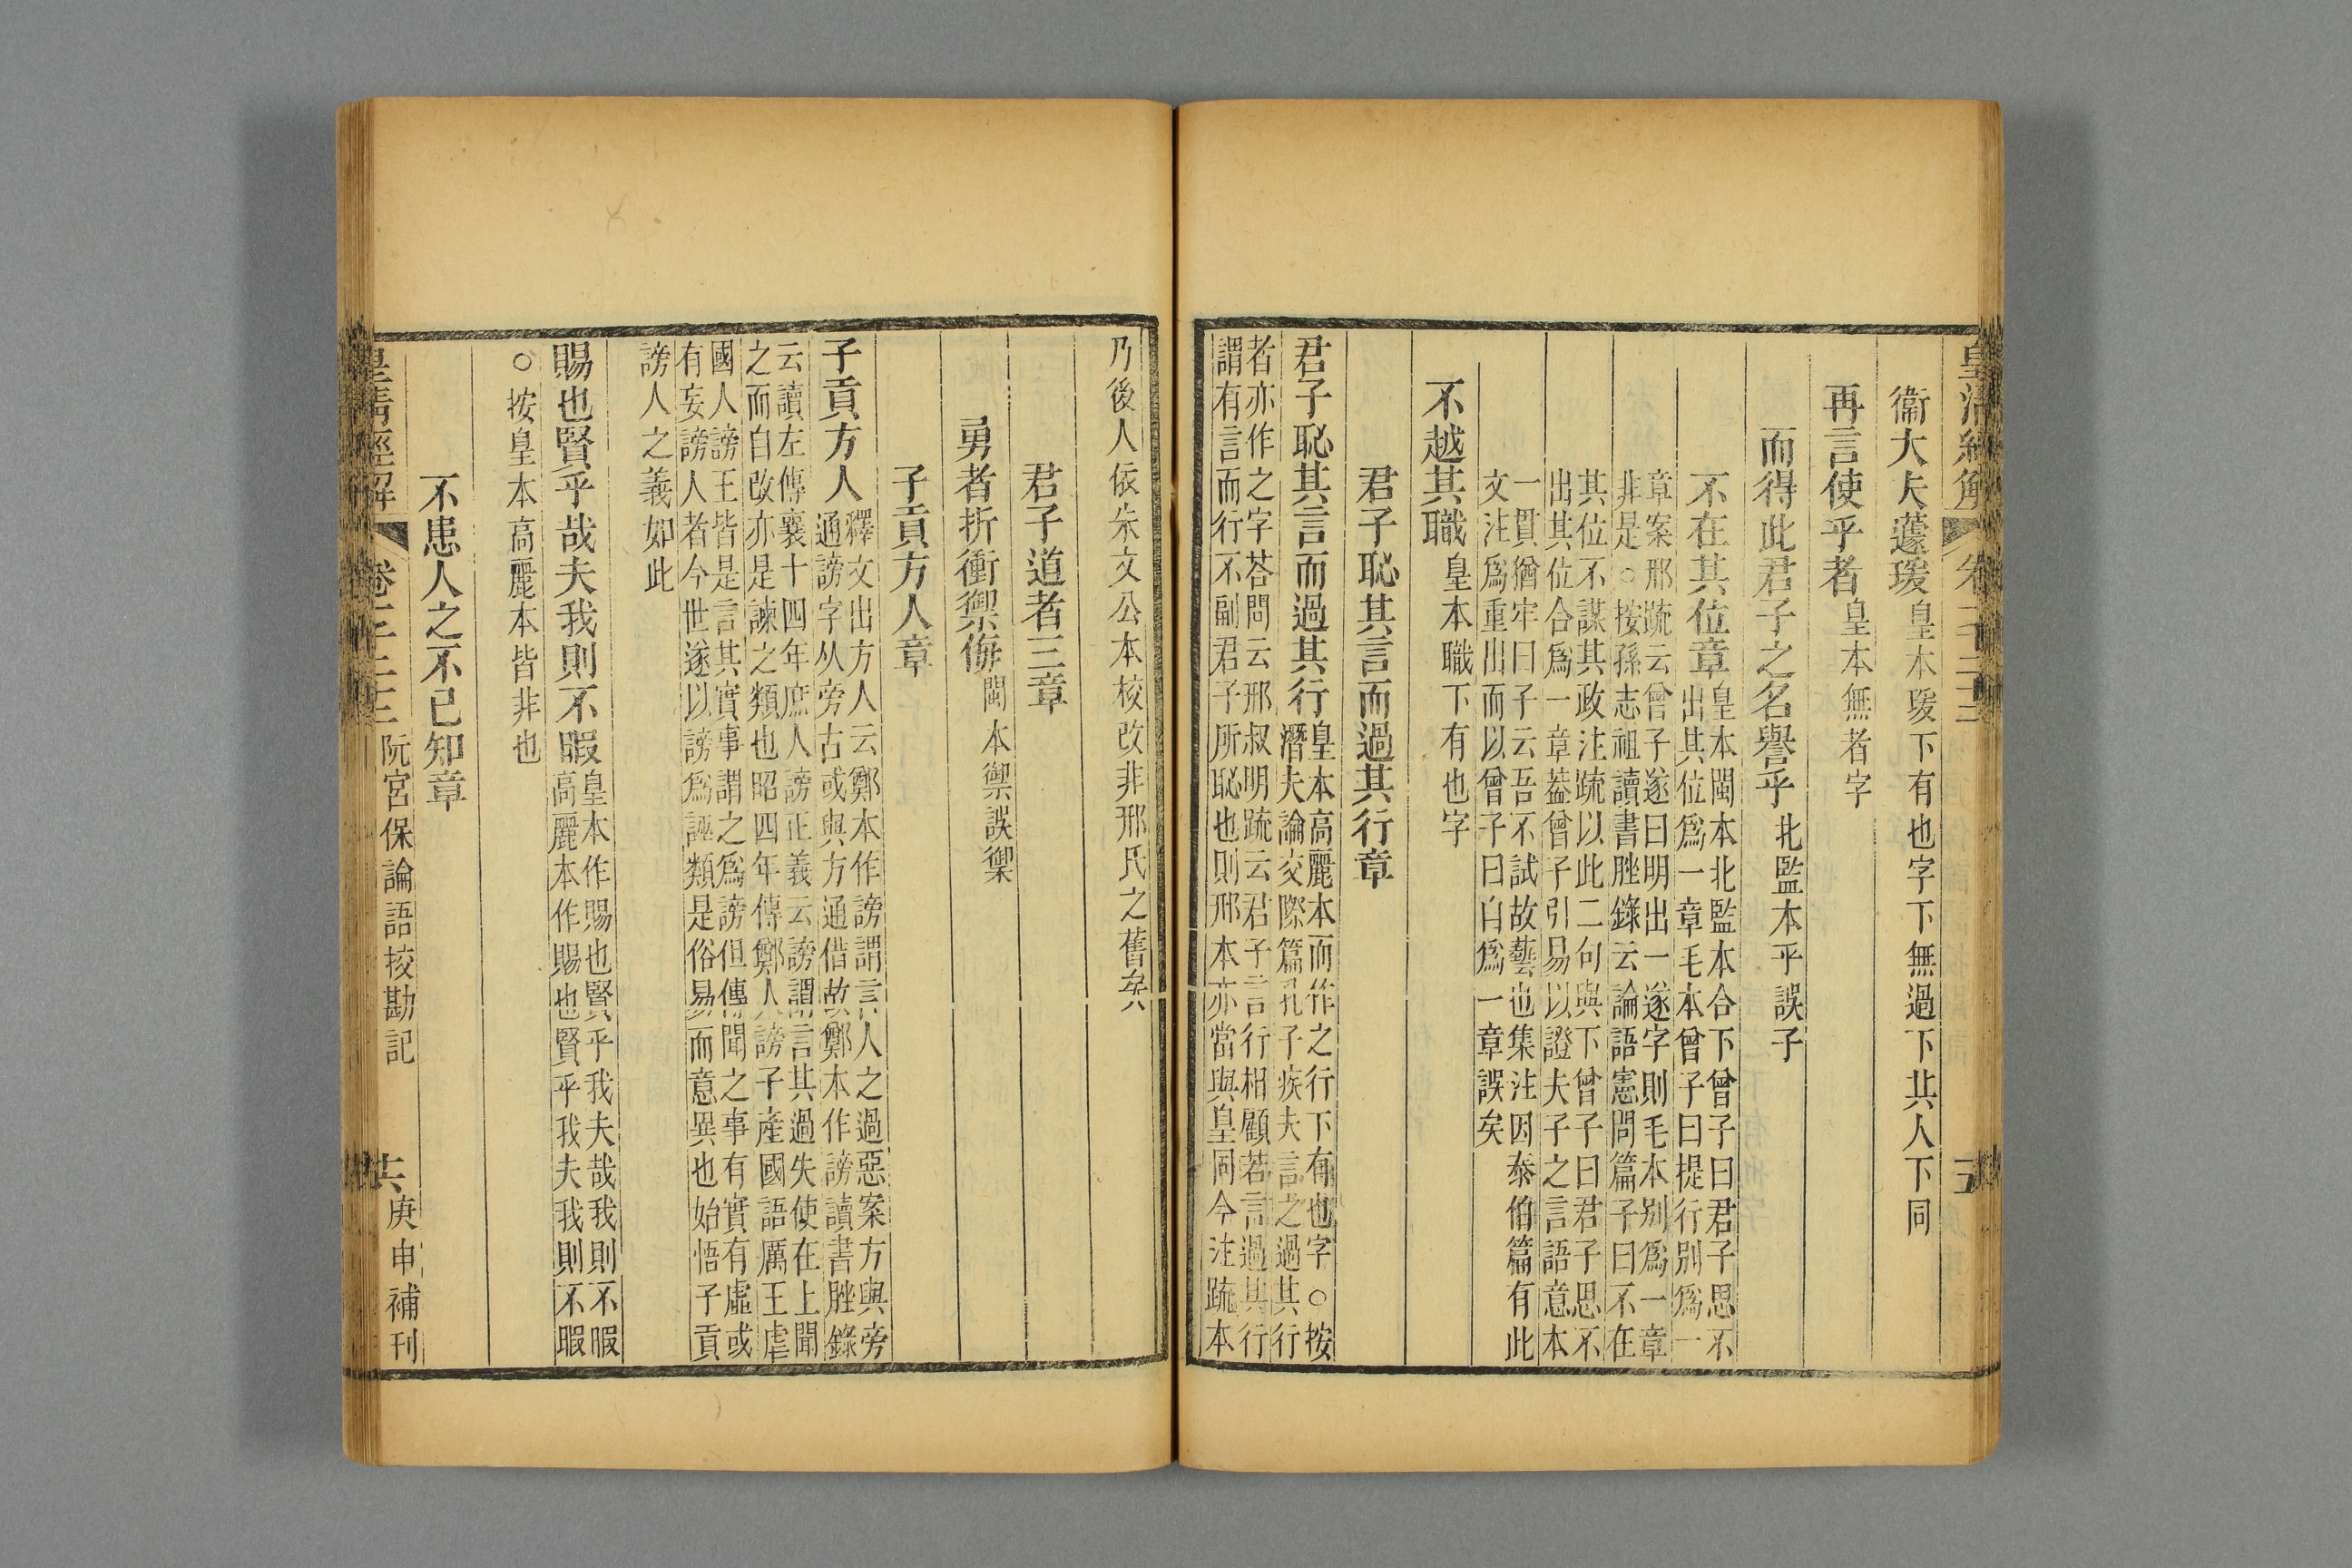 皇清經解 卷一千二十三
衞大夫蘧瑗皇本瑗下有也字下無過下共人下同
再言使乎者皇本無者字
而得此君子之名譽乎北監本乎誤子
不在其位章皇本閩本北監本合下曾子曰君子思不
出其位爲一章毛本曾子曰提行別爲一
章案邢疏云曾子遂曰明出一遂字則毛本別爲一章
非是○按孫志祖讀書脞錄云論語憲問篇子曰不在
其位不謀其政注疏以此二句與下曾子曰君子思不
出其位合爲一章蓋曾子引易以證夫子之言語意本
一貫猶牢曰子云吾不試故藝也集注因泰伯篇有此
文注爲重出而以曾子曰自爲一章誤矣
不越其職皇本職下有也字
君子恥其言而過其行章
君子恥其言而過其行皇本高麗本而作之行下有也字○按
潛夫論交際篇孔子疾夫言之過其行
者亦作之字荅問云邢叔明疏云君子言行相顧若言過其行
謂有言而行不副君子所恥也則邢本亦當與皇同今注疏本
乃後人依朱文公本校改非邢氏之舊矣
君子道者三章
勇者折衝禦侮閩本禦誤禦
子貢方人章
子貢方人釋文出方人云鄭本作謗謂言人之過惡案方與旁
通謗字从旁古或與方通借故鄭本作謗讀書脞錄
云讀左傳襄十四年庶人謗正義云謗謂言其過失使在上聞
之而自改亦是諫之類也昭四年傳鄭人謗子產國語厲王虐
國人謗王皆是言其實事謂之爲謗但傳聞之事有實有虛或
有妄謗人者今世遂以謗爲誣類是俗易而意異也始悟子貢
謗人之義如此
賜也賢乎哉夫我則不暇皇本作賜也賢乎我夫哉我則不暇
高麗本作賜也賢乎我夫我則不暇
○按皇本高麗本皆非也
不患人之不己知章
皇清經解 卷一千二十三 阮宮保論語挍勘記 十六 庚申補刊